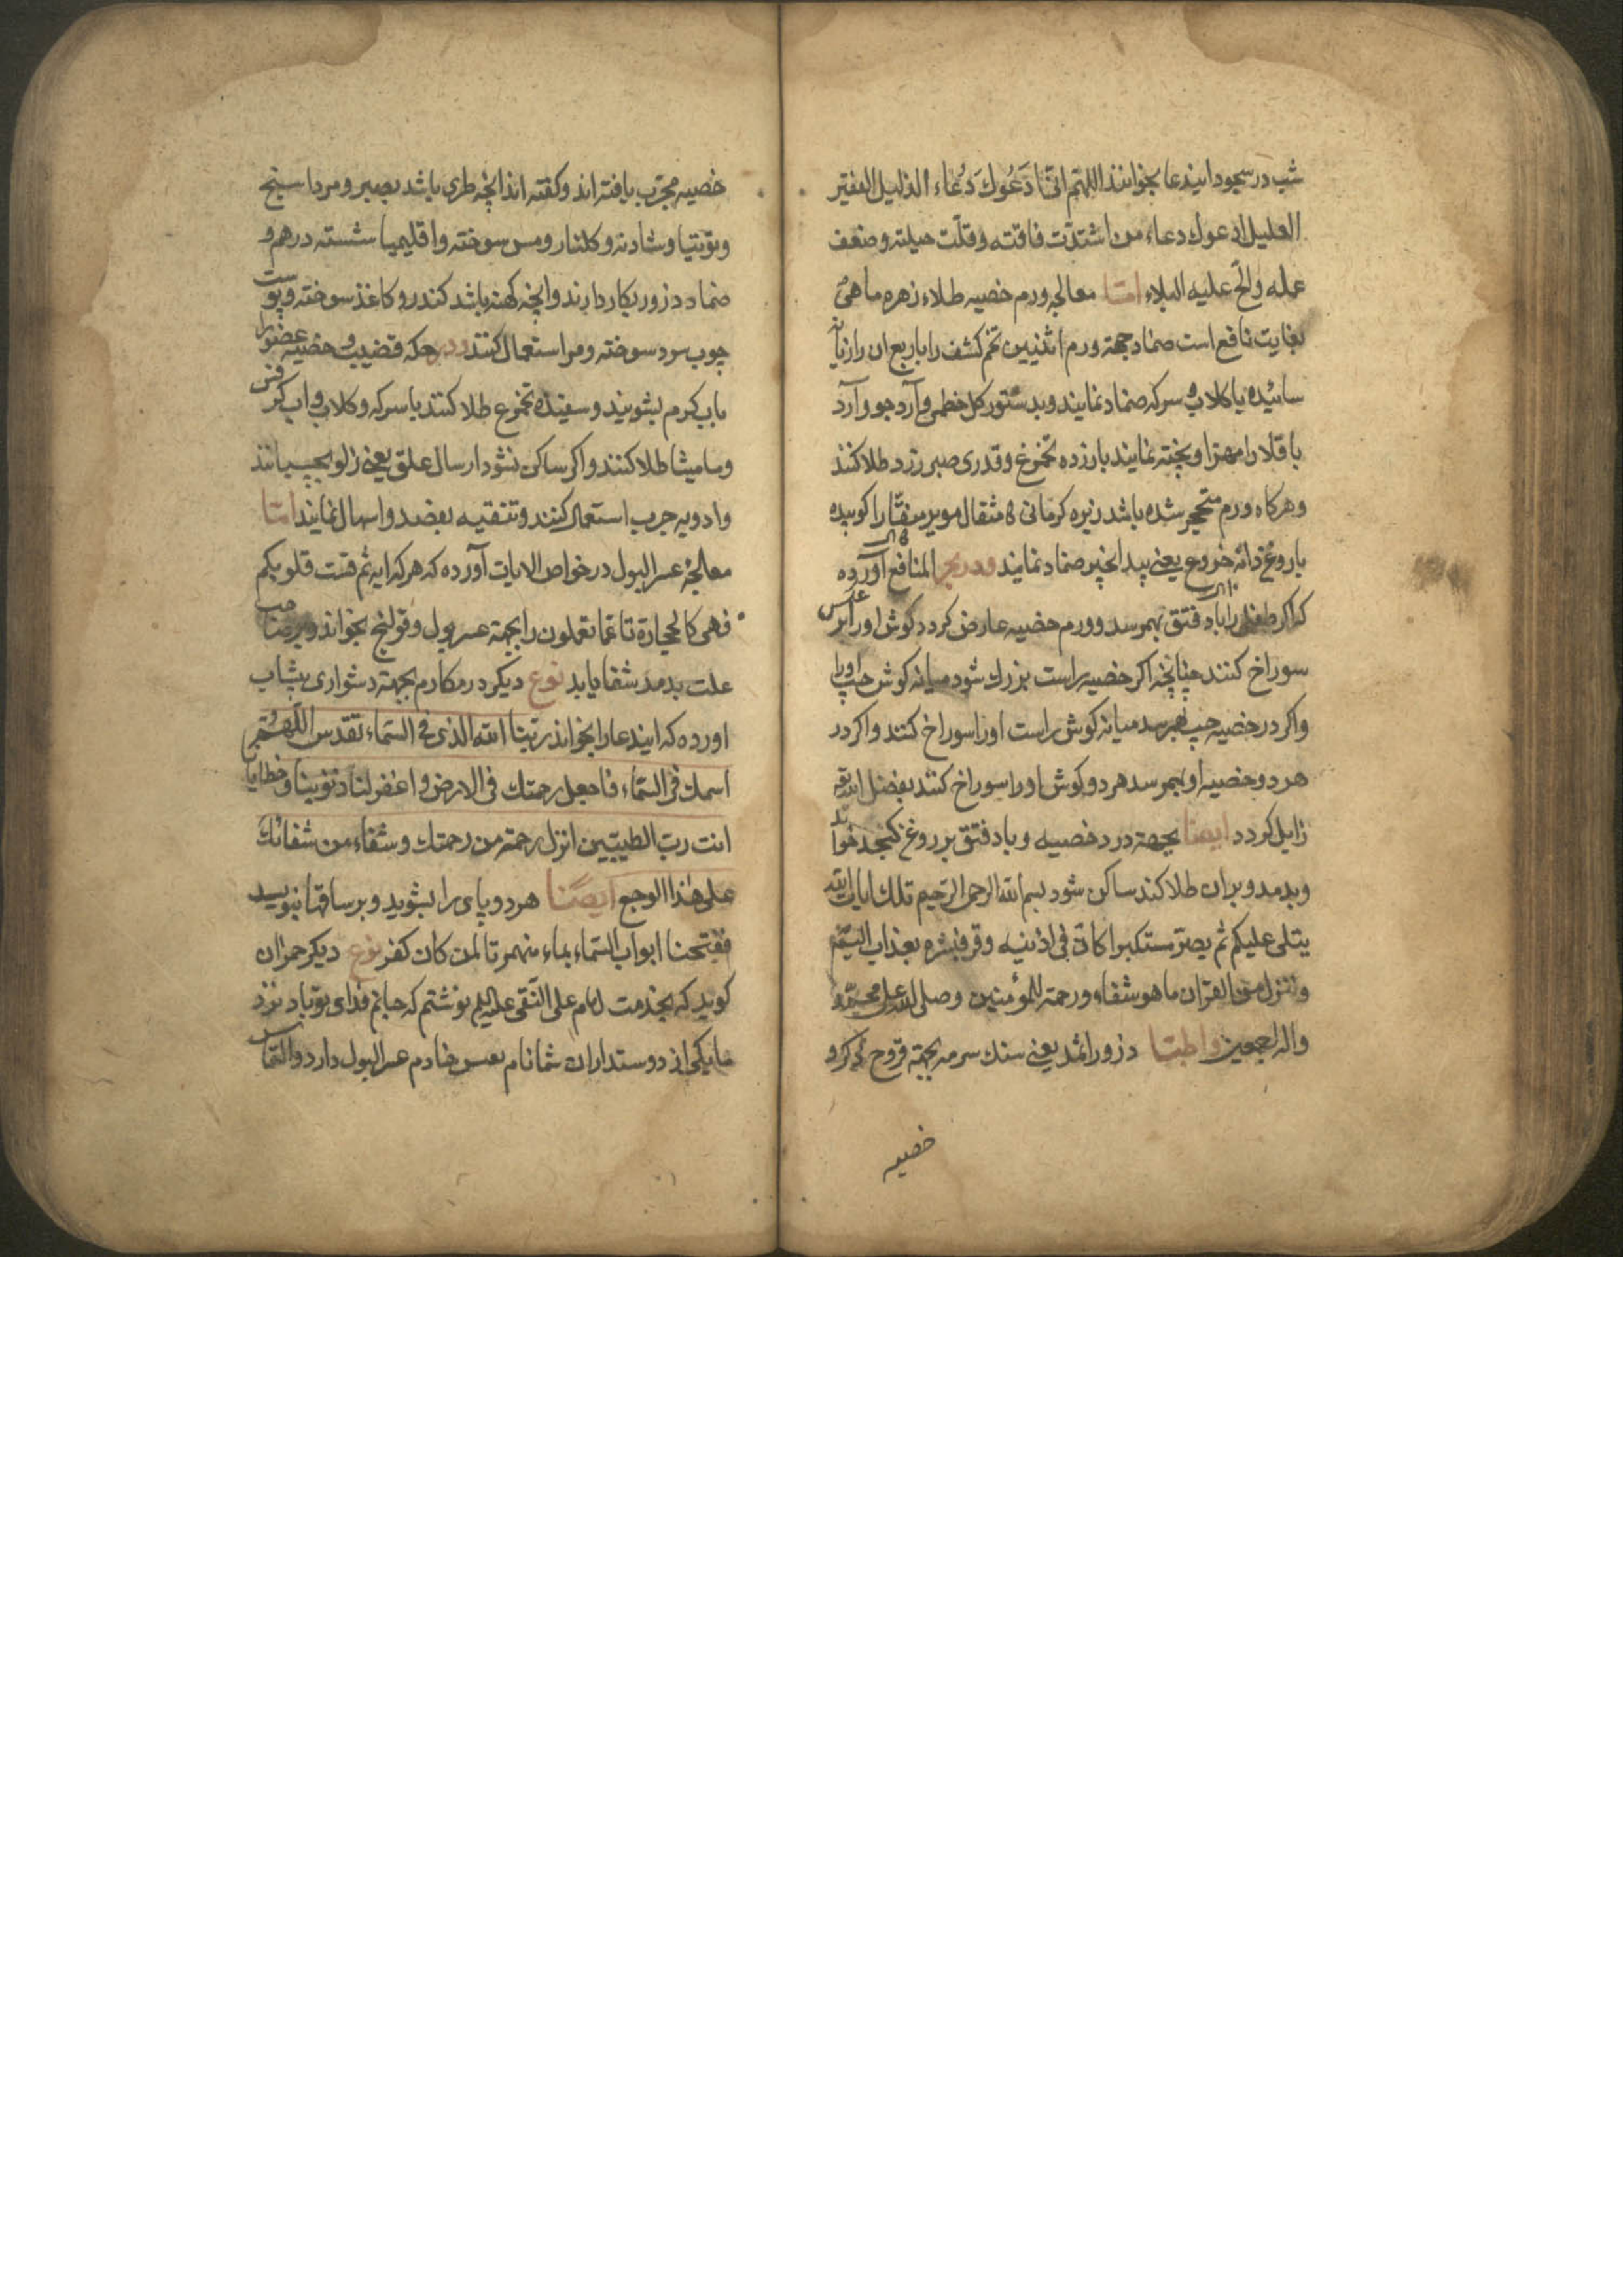 شب در سجود ایندعا بخوانند اللهم انی ادعوك دعاء الذلیل الفقیر
العلیل ادعوك دعاء من اشتدت فاقته وقلت حیلته وضعف
عمله والح علیه البلاء اما معالجه ورم خصیه طلاء زهره ماهی
بغایت نافع است ضماد جهة ورم انثیین تخم كشف را با ربع ان رازیانه
سائیده با كلاب و سركه ضماد نمایند و بدستور كل خطمی و آرد جو و آرد
باقلا را مهرا و پخته نمایند با زرده تخم‌مرغ و قدری صبر زرد طلا كنند
وهركاه ورم متحجر شده باشد زیره كرمانی مثقال مویز منقا را كوبیده
با روغن دانه خروع یعنی بید انجیر ضماد نمایند ودر بحر المنافع آورده
كه اكر طفلی را باد فتق بهمرسد و ورم خصیه عارض كردد كوش او را بر عكس
سوراخ كنند چنانچه اكر خصیه راست بزرك شود میانه كوش چپ او را
واكر در خصیه چپ بهمرسد میانه كوش راست او را سوراخ كنند واكر در
هر دو خصیه او بهمرسد هر دو كوش او را سوراخ كنند بفضل الله تع
زایل كردد ایضا بجهة درد خصیه و باد فتق بر روغن كنجد خواند
وبدمد وبران طلا كند ساكن شود بسم الله الرحمن الرحیم تلك ایات الله
یتلی علیكم ثم یصر مستكبرا كان فی اذنیه وقر فبشره بعذاب الیم
وننزل من القران ما هو شفاء ورحمة للمؤمنین وصلی الله علی محمد و
واله اجمعین واطبا ذرور اثمد یعنی سنك سرمه بجهة قروح ذكر و
خصیه
خصیه مجرب یافته اند و كفته اند انچه طری باشد بصبر و مرداسنج
وتوتیا و شادنه و كلنار و مس سوخته و اقلیمیا شسته درهم و
ضماد و ذرور بكار دارند و انچه كهنه باشد كندر و كاغذ سوخته و پوست
چوب سرو سوخته و مر استعمال كنند ودر حكه قضیب و خصیه عضو را
باب كرم بشویند و سفیده تخم‌مرغ طلا كنند با سركه و كلاب و اب كرفس
ومامیثا طلا كنند و اكر ساكن نشود ارسال علق یعنی زلو بچسبانند
وادویه جرب استعمال كنند و تنقیه بفصد و اسهال نمایند اما
معالجه عسر البول در خواص الایات آورده كه هر كه ایه ثم قست قلوبكم
فهی كالحجارة تا عما تعملون را بجهة عسر بول و قولنج بخواند و بر صاحب
علت بدمد شفا یابد نوع دیكر در مكارم بجهة دشواری پیشاب
اورده كه ایندعا را بخواند ربنا الله الذی فی السماء تقدس اللهم
اسمك فی السماء فاجعل رحمتك فی الارض و اغفر لنا ذنوبنا وخطایانا
انت رب الطیبین انزل رحمة من رحمتك وشفاء من شفائك
علی هذا الوجع ایضا هر دو پای را بشوید و بر ساقها بنویسد
ففتحنا ابواب السماء بماء منهمر تا لمن كان كفر نوع دیكر حمران
كوید كه بخدمت امام علی النقی علیه نوشتم كه جانم فدای تو باد نزد
ما یكی از دوستداران شما نام خادم عسر البول دارد و التماس